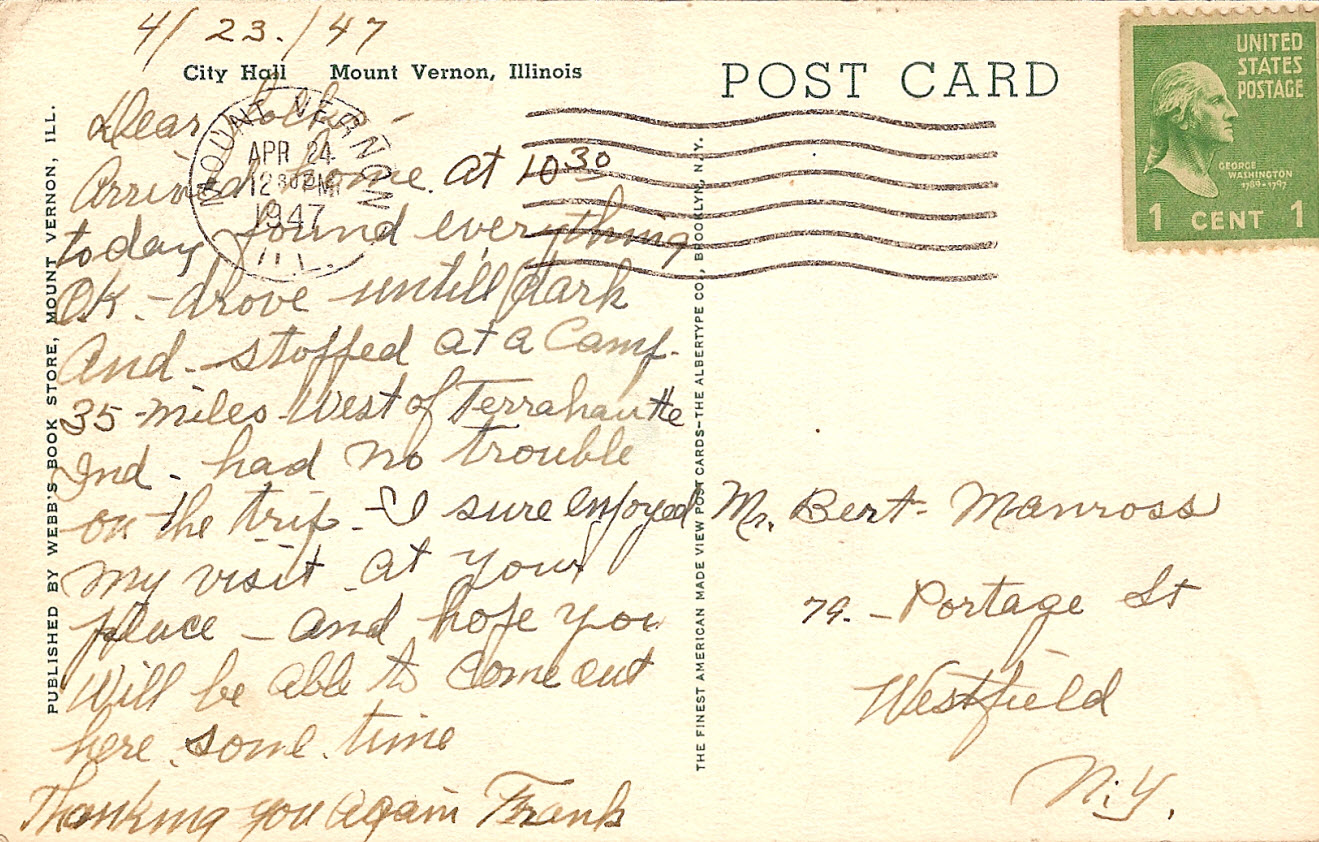 4/23./47
City Hall Mount Vernon, Illinois
POST CARD
UNITED
STATES
POSTAGE
GEORGE
WASHINGTON
1789-1797
1 CENT 1
MOUNT VERNON
APR 24
12 30 PM
1947
ILL.
Dear Folks -
Arrived home at 10 30
today found everything
OK. - drove untill dark
And - stopped at a Camp.
35 - miles West of Terrahautte
Ind - had no trouble
on the trip. - I sure enjoyed
my visit at your
place - and hope you
Will be able to come out
here some time
Thanking you again Frank
Mr. Bert Manross
79. - Portage St
Westfield
N.Y.
PUBLISHED BY WEBB'S BOOK STORE, MOUNT VERNON, ILL.
THE FINEST AMERICAN MADE VIEW POST CARDS—THE ALBERTYPE CO., BROOKLYN, N.Y.